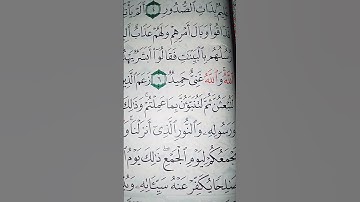 عَلِيمُۢ بِذَاتِ ٱلصُّدُورِ ٤ أَلَمْ يَأْتِ
فَذَاقُوا۟ وَبَالَ أَمْرِهِمْ وَلَهُمْ عَذَابٌ
رُسُلُهُم بِٱلْبَيِّنَٰتِ فَقَالُوٓا۟ أَبَشَرٌ يَهْ
ٱللَّهُ وَٱللَّهُ غَنِىٌّ حَمِيدٌ ٦ زَعَمَ ٱلَّذِ
لَتُبْعَثُنَّ ثُمَّ لَتُنَبَّؤُنَّ بِمَا عَمِلْتُمْ وَذَٰلِكَ
وَرَسُولِهِۦ وَٱلنُّورِ ٱلَّذِىٓ أَنزَلْنَا
يَجْمَعُكُمْ لِيَوْمِ ٱلْجَمْعِ ذَٰلِكَ يَوْمُ ٱ
صَٰلِحًا يُكَفِّرْ عَنْهُ سَيِّـَٔاتِهِۦ وَيُ